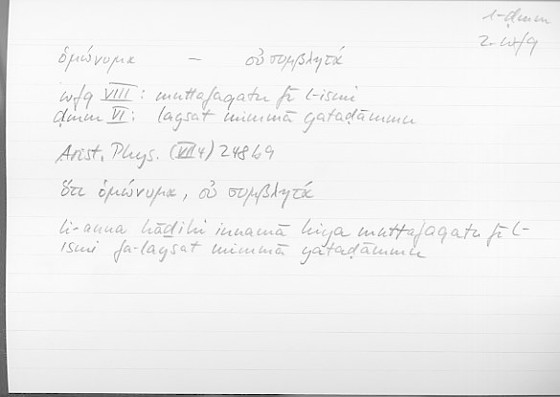 1-ḍmm
2-wfq
ὁμώνυμα — οὐ συμβλητά
wfq VIII: muttafaqatu fī l-ismi
ḍmm VI: laysat mimmā yataḍāmmu
Arist. Phys. (VII 4) 248b9
ὅτι ὁμώνυμα, οὐ συμβλητά
li-anna hāḏihi innamā hiya muttafaqatu fī l-
ismi fa-laysat mimmā yataḍāmmu